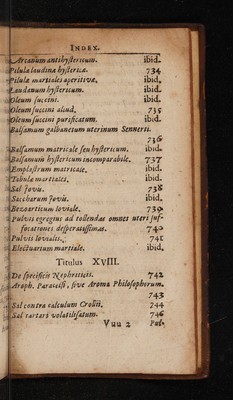 INDEX.
Arcanum antihystericum. ibid.
Pilula laudina hysterica. 734
Pilulæ martiales aperitivæ. ibid.
Laudanum hystericum. ibid.
Oleum succini. ibid.
Oleum succini aliud. 735
Oleum succini purificatum. ibid.
Balsamum galbanetum uterinum Sennerti.
736
Balsamum matricale seu hystericum. ibid.
Balsamum hystericum incomparabile. 737
Emplastrum matricale. ibid.
Tabulæ martiales. ibid.
Sal Jovis. 738
Saccharum Jovis. ibid.
Bezoarticum Ioviale. 739
Pulvis egregius ad tollendas omnes uteri suf-
focationes desperatissimas. 740
Pulvis Iovialis. 741
Electuarium martiale. ibid.
Titulus XVIII.
De specificis Nephreticis. 742
Aroph. Paracelsi, sive Aroma Philosophorum.
743
Sal contra calculum Crollii. 744
Sal tartari volatilisatum. 746
Vuu 2 Pul-